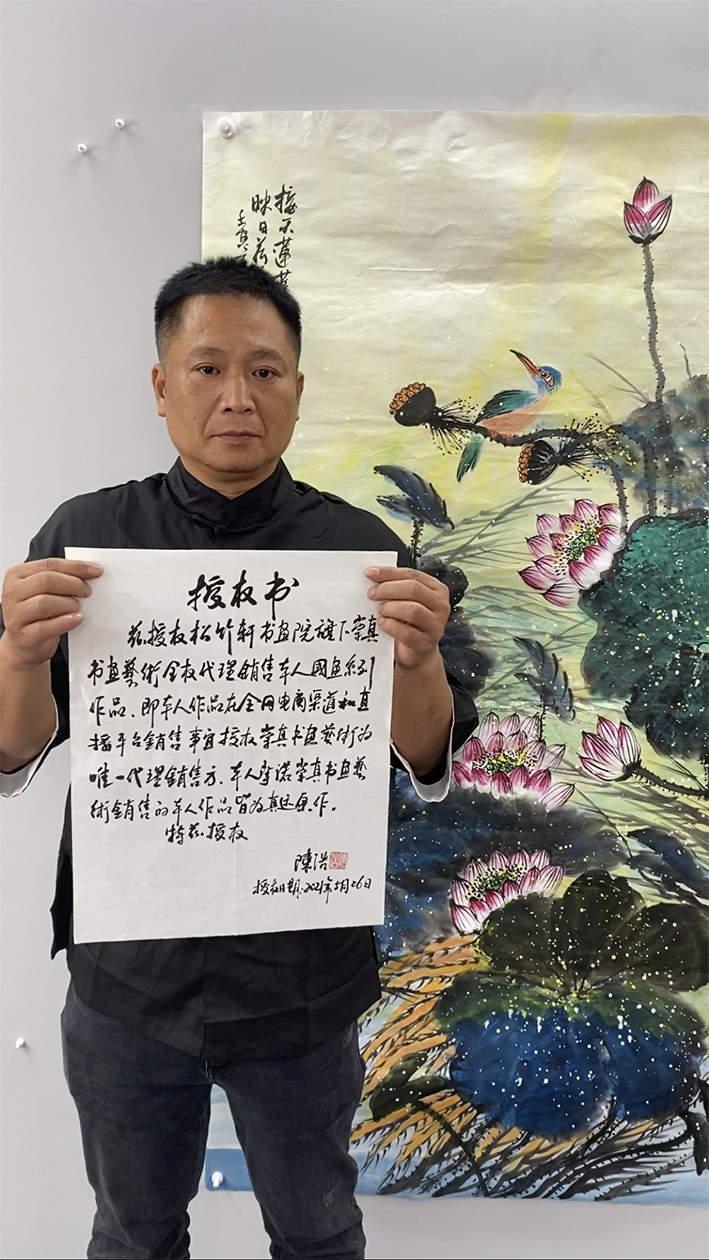 接天蓮
映日荷
授权书
兹授权松竹轩书画院旗下崇真
书画藝術全权代理銷售本人國画系列
作品、即本人作品在全网电商渠道和直
播平台銷售事宜授权崇真书画藝術为
唯一代理銷售方、本人承诺崇真书画藝
術銷售的本人作品皆为真迹原作。
特兹授权
陳浩
授权日期:2021年5月26日